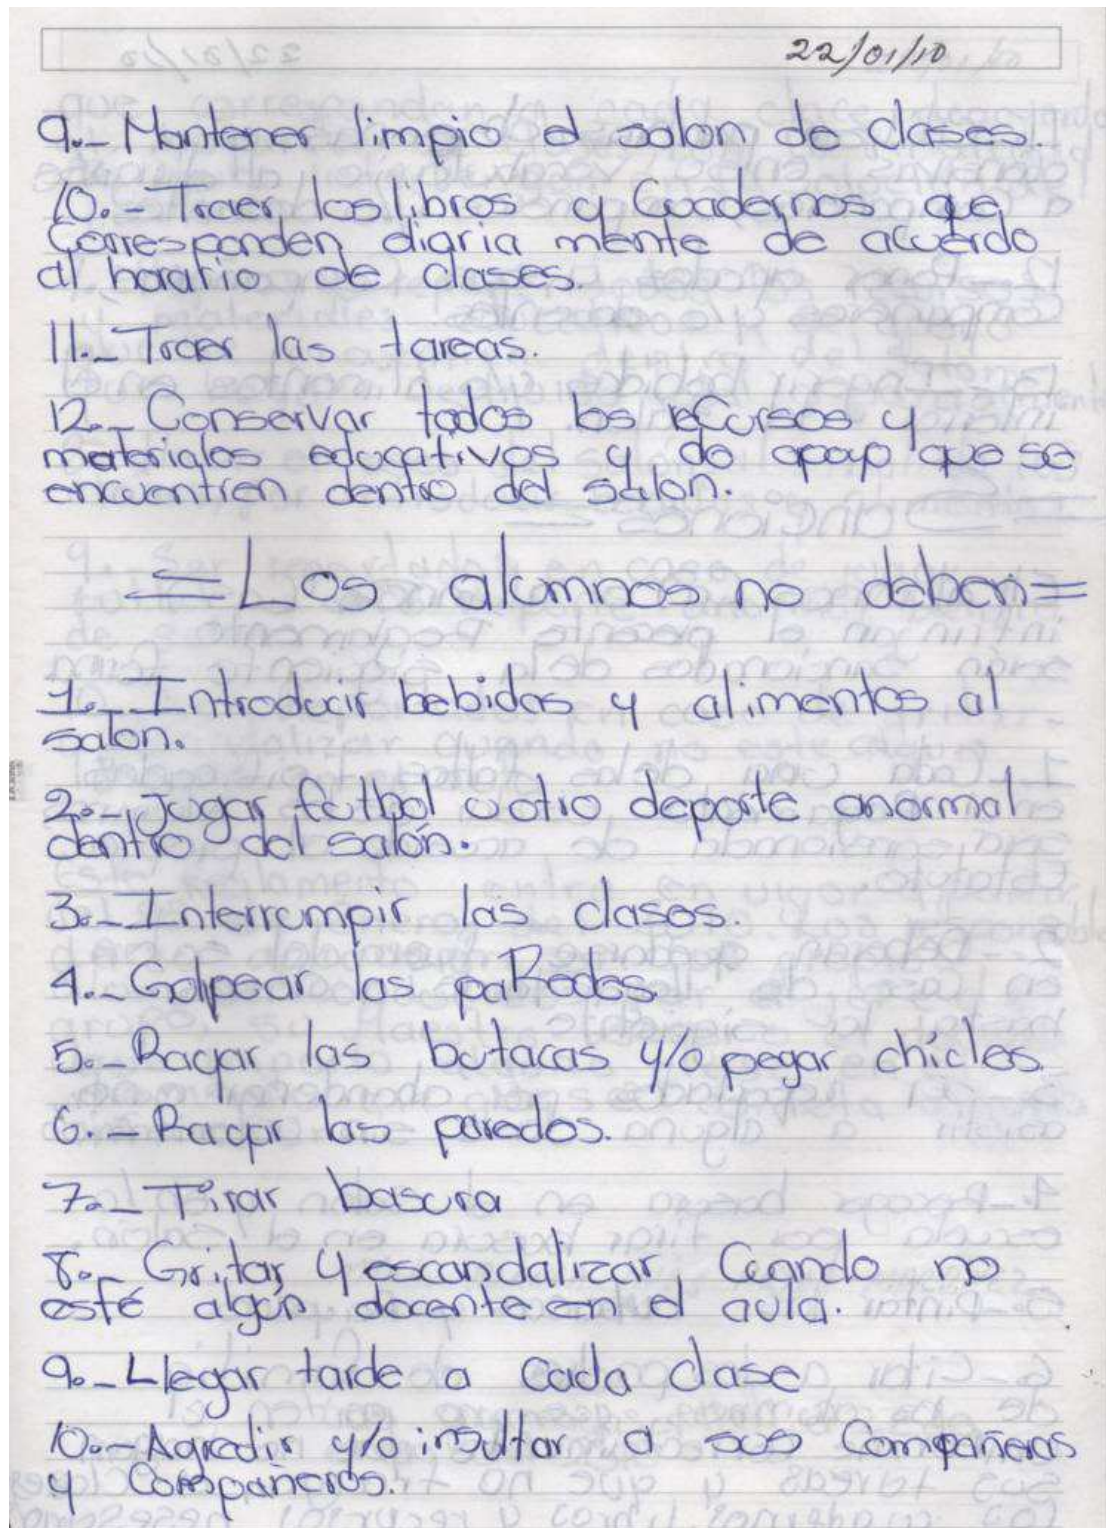 22/01/10
9.- Mantener limpio el salon de clases.
10.- Traer los libros y Cuadernos que
Corresponden diaria mente de acuerdo
al horario de clases.
11.- Traer las tareas.
12.- Conservar todos los reCursos y
materiales educativos y de apoyo que se
encuentren dentro del salon.
=Los alumnos no deben=
1.- Introducir bebidas y alimentos al
salon.
2.- Jugar futbol u otro deporte anormal
dentro del salón.
3.- Interrumpir las clases.
4.- Golpear las paRedes.
5.- Rayar las butacas y/o pegar chícles.
6.- Rayar las paredes.
7.- Tirar basura
8.- Gritar y escandalizar, Cuando no
esté algún docente en el aula.
9.- Llegar tarde a cada clase
10.- Agredir y/o insultar a sus Compañeras
y Compañeros.